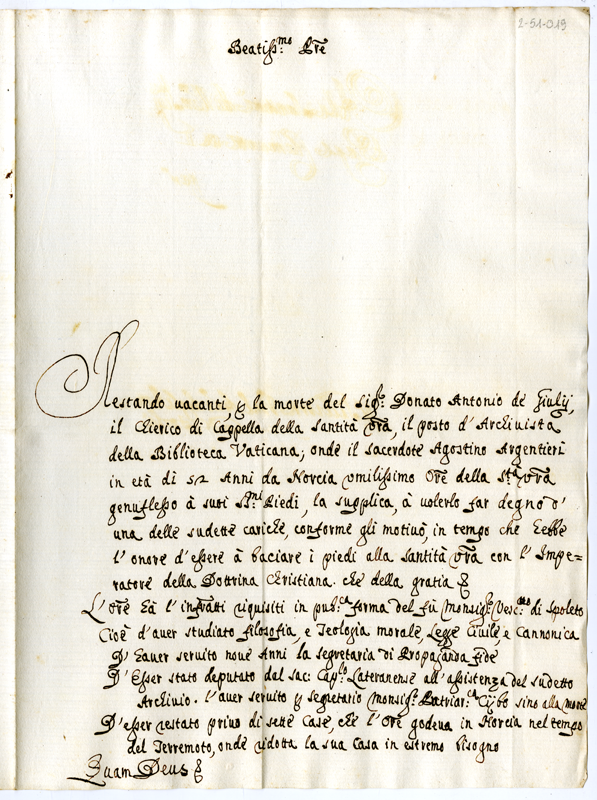 2-51-019
Beatiss.mo Pre
Restando uacanti, p la morte del sig.r Donato Antonio de Giulij,
il Chierico di Cappella della Santità Vra, il posto d'Archiuista
della Biblioteca Vaticana; onde il sacerdote Agostino Argentieri
in età di 52 Anni da Norcia umilissimo Ore della S.tà Vra
genuflesso à suoi S.mi Piedi, la supplica, à uolerlo far degno d'
una delle sudette cariche, conforme gli motiuò, in tempo che hebbe
l'onore d'essere à baciare i piedi alla Santità Vra con l'Impe-
ratore della Dottrina Christiana. che della gratia &
L'Ore hà l'infratti riquisiti in pub.ca forma del fù Monsig.r Vesc.uo di Spoleto
Cioè d'auer studiato filosofia, e Teologia morale, Legge Ciuile, e Cannonica
D'hauer seruito noue Anni la segretaria di Propaganda fide
D'Esser stato deputato dal sac: Cap.lo Lateranense all'assistenza del sudetto
Archiuio. l'auer seruito p segretario Monsig.r Patriar.ca Cybo sino alla morte
D'esser restato priuo di sette Case, che l'Ore godeua in Norcia nel tempo
del Terremoto, onde ridotta la sua Casa in estremo bisogno
Quam Deus &